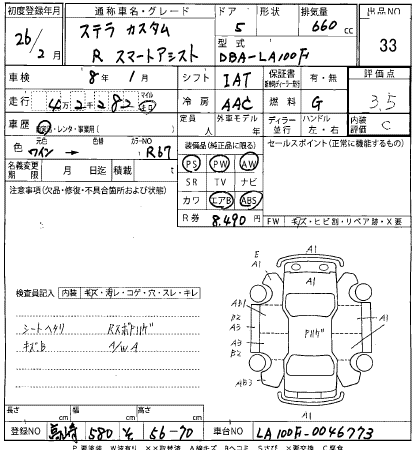 初度登録年月 通称車名・グレード ドア 形状 排気量 出品NO
26/2月 ステラ カスタム R スマートアシスト 5 660cc 33
型式 DBA-LA100F
車検 8年1月 シフト IAT 保証書 有・無 評価点
走行 4万2千282 マイル km 冷房 AAC 燃料 G 3.5
車歴 自家用・レンタ・事業用( ) 定員 人 外車モデル 年 ディーラー 並行 ハンドル 左・右 内装評価 C
色 元色 ワイン 色替 カラーNO R67 装備品(純正品に限る) セールスポイント(正常に機能するもの)
名義変更期限 月 日迄 積載 t PS PW AW
注意事項(欠品・修復・不具合箇所および状態) SR TV ナビ
カワ エアB ABS
R券 8,490円 FW キズ・ヒビ割・リペア跡・X要
検査員記入 内装 キズ・汚レ・コゲ・穴・スレ・キレ
シートヘタリ
キズB
A1
E
A1
AB1
B2
A3
A3
B2
AB3
A1
A1
長さ cm 幅 cm 高さ cm
登録NO 高崎 580 そ 56-70 車台NO LA100F-0046773